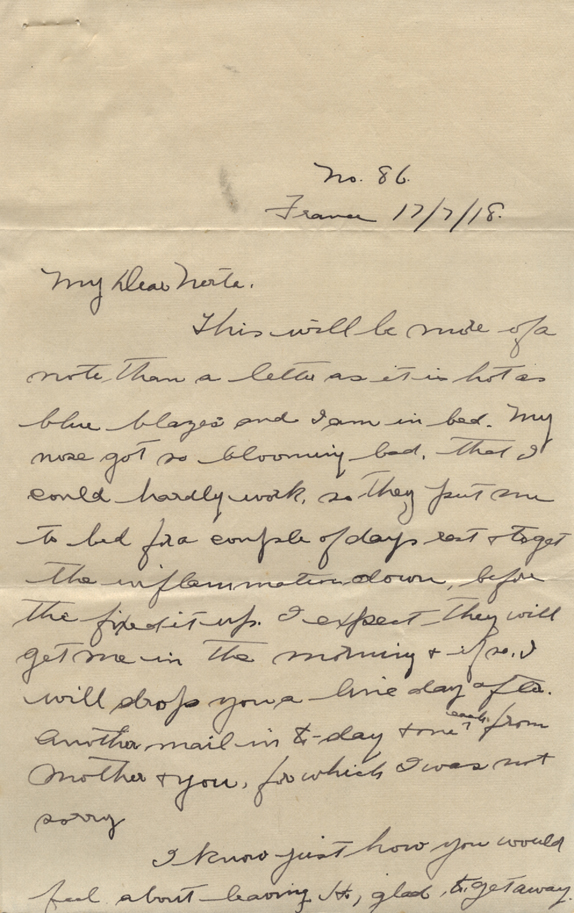 No. 86.
France 17/7/18.
My Dear Norte.
This will be more of a
note than a letter as it is hot as
blue blazes and I am in bed. My
nose got so blooming bad, that I
could hardly work, so they put me
to bed for a couple of days rest & to get
the inflammation down, before
the fixed it up. I expect they will
get me in the morning & if so, I
will drop you a line day after.
Another mail in to-day & one each from
Mother & you, for which I was not
sorry
I know just how you would
feel about leaving , glad to get away